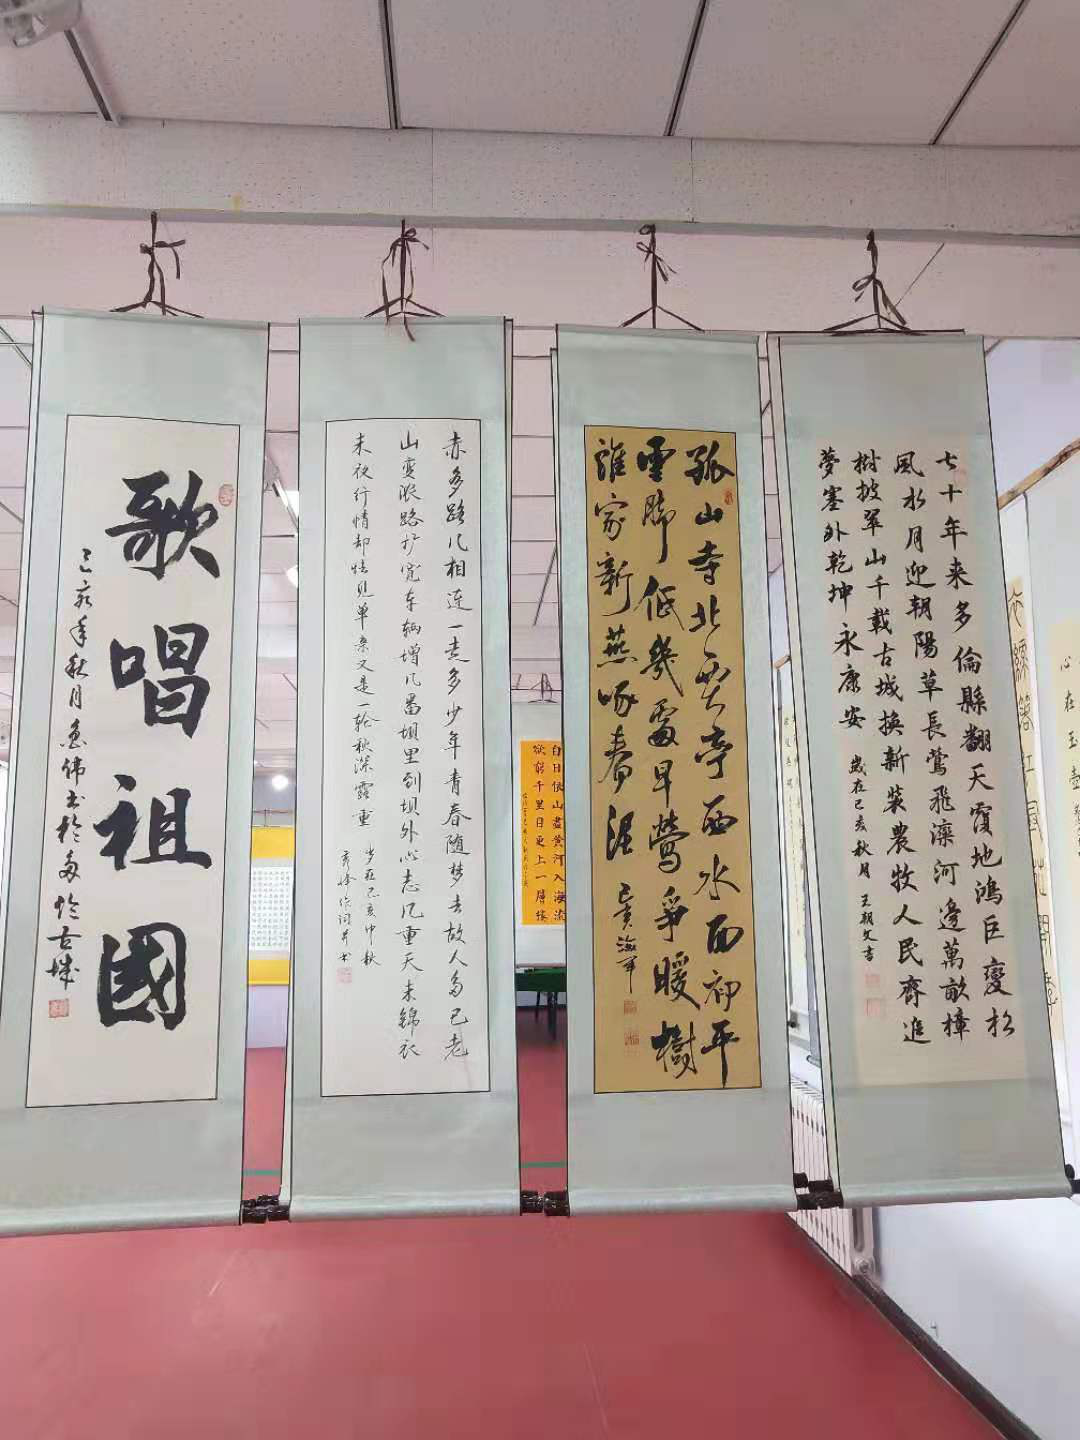 七十年来多倫縣翻天覆地鴻巨變松
風水月迎朝陽草長鶯飛灤河邊萬畝樟
樹披翠山千載古城换新装農牧人民齊追
夢塞外乾坤永康安
歲在己亥秋月王朝文書
孤山寺北賈亭西水面初平
雲脚低幾處早鶯爭暖樹
誰家新燕啄春泥
赤多路几相連一走多少年青春随梦去故人多已老
山变浓路扩宽车辆增几番坝里到坝外心志几重天未锦衣
来夜行情却怯见单桑又是一轮秋深露重
岁在己亥中秋
歌唱祖國
己亥年秋月魯偉书於多伦古城
白日依山盡黄河入海流
欲窮千里目更上一層樓
心在玉壺